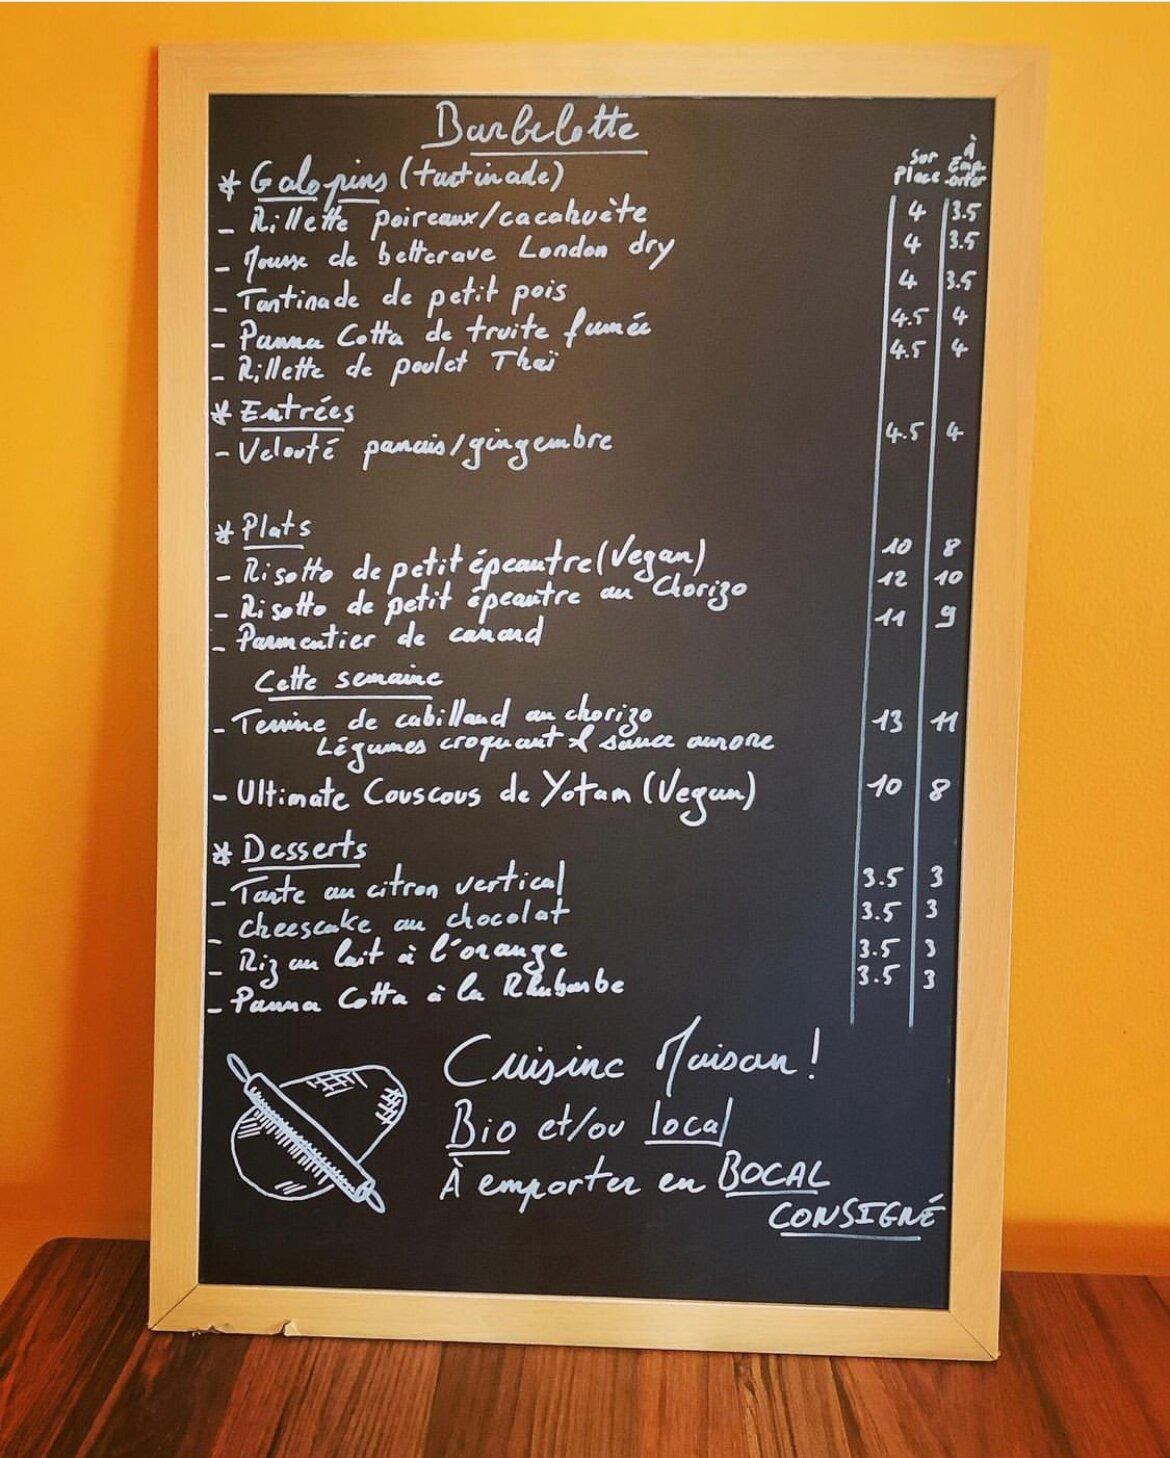 Barbelotte
Sur Place À Emp-orter
* Galopins (tartinade)
- Rillette poireaux/cacahuète 4 3.5
- Mousse de betterave London dry 4 3.5
- Tartinade de petit pois 4 3.5
- Panna Cotta de truite fumée 4.5 4
- Rillette de poulet Thaï 4.5 4
* Entrées
- Velouté panais/gingembre 4.5 4
* Plats
- Risotto de petit épeautre (Vegan) 10 8
- Risotto de petit épeautre au Chorizo 12 10
- Parmentier de canard 11 9
Cette semaine
- Terrine de cabillaud au chorizo 13 11
Légumes croquant & sauce aurore
- Ultimate Couscous de Yotam (Vegan) 10 8
* Desserts
- Tarte au citron vertical 3.5 3
- cheescake au chocolat 3.5 3
- Riz au lait à l'orange 3.5 3
- Panna Cotta à la Rhubarbe 3.5 3
Cuisine Maison !
Bio et/ou local
À emporter en BOCAL
CONSIGNÉ